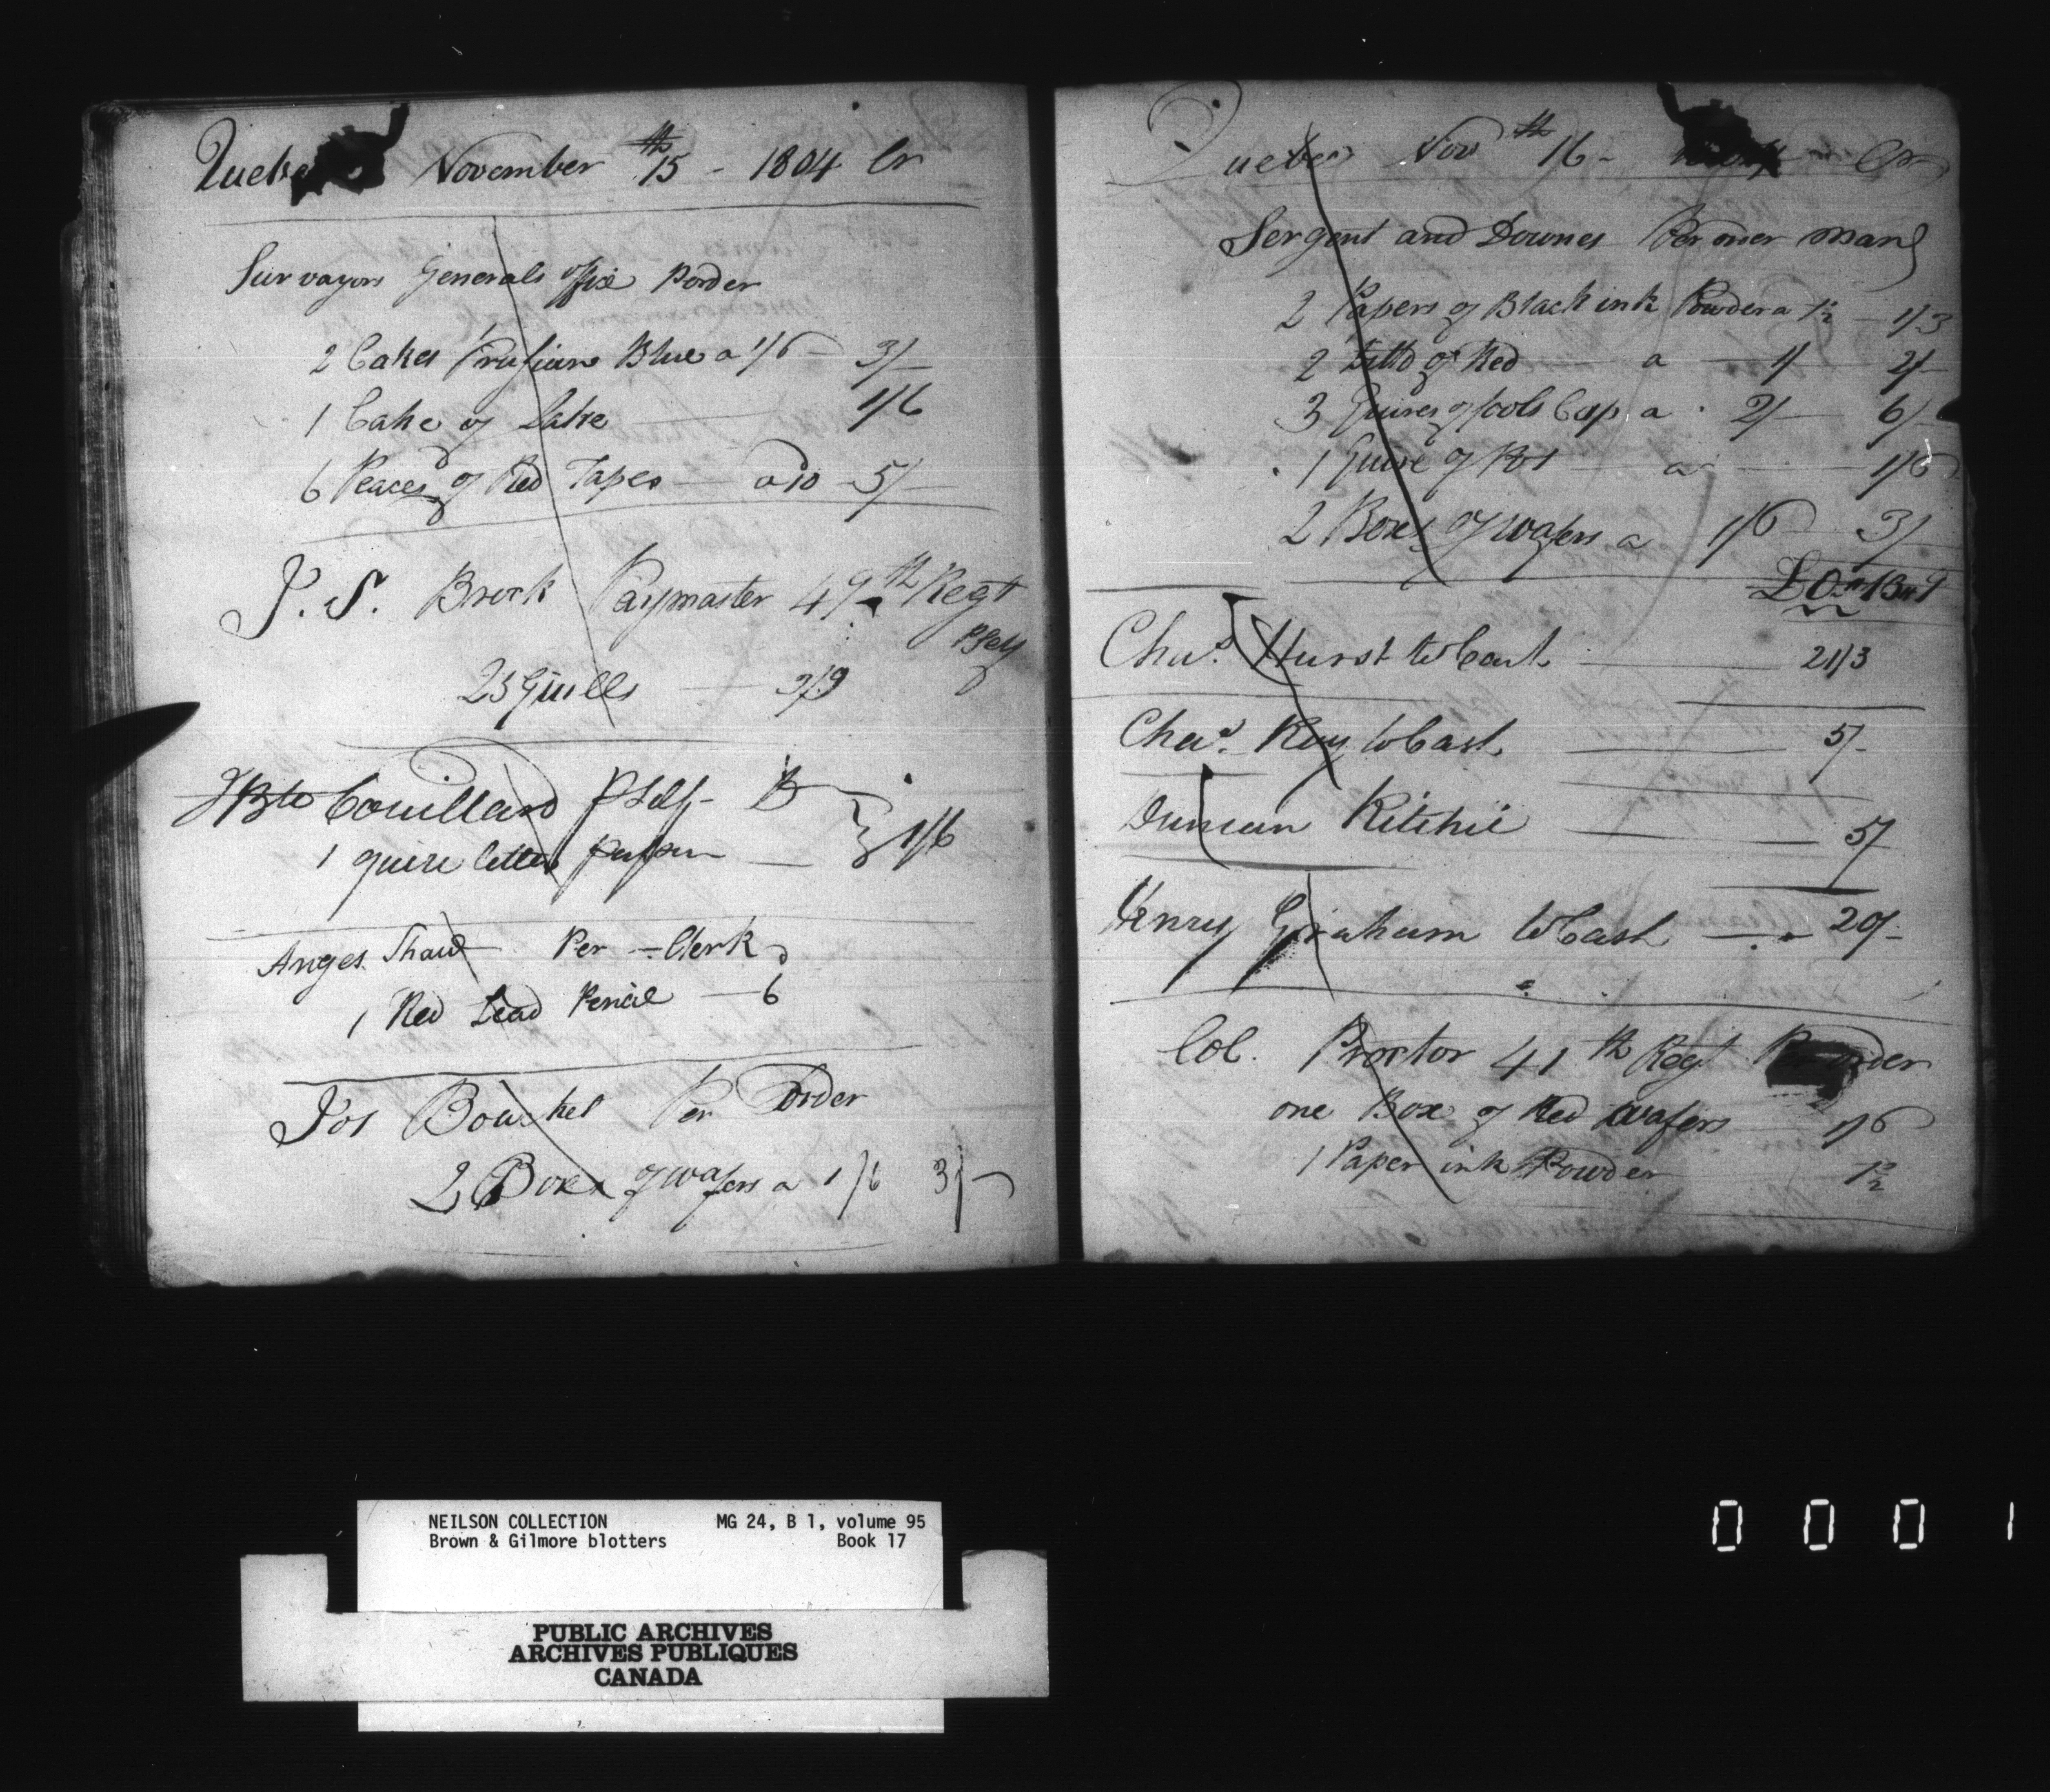 Quebec November 15th - 1804 Cr
Survayors Generals offise Porder
2 Cakes Prusian Blue a 1/6 - 3/-
1 Cake of Lake 1/6
6 Peaces of Red Tapes a 10 - 5/
J. S. Brock Paymaster 49th Regt
Pself
25 Quills 3/9
JBte Couillard Pself -
1 quire letter paper 1/6
Anges Shaw Per - Clerk
1 Red Lead Pencil - 6
Jos Bouchet Per Order
2 Boxes of wafers a 1/6 3/-
Quebec Nov 16th - Cr
Sergent and Downes Per their man
2 Papers of Black ink Powder a 7½ - 1/3
2 Ditto of Red a 1/ 2/
3 Quires of fools Cap a 2/ 6/
1 Quire of Pot a 1/6
2 Boxes of wafers a 1/6 3/
£0 " 13 " 9
Chas. Hurst to Cash 21/3
Chas. Roy to Cash 5/-
Duncan Ritchie 5/
Henry Graham to Cash 20/-
Col. Proctor 41th Regt Per order
one Box of Red wafers 1/6
1 Paper ink Powder 7½
NEILSON COLLECTION MG 24, B 1, volume 95
Brown & Gilmore blotters Book 17
PUBLIC ARCHIVES
ARCHIVES PUBLIQUES
CANADA
0 0 0 1